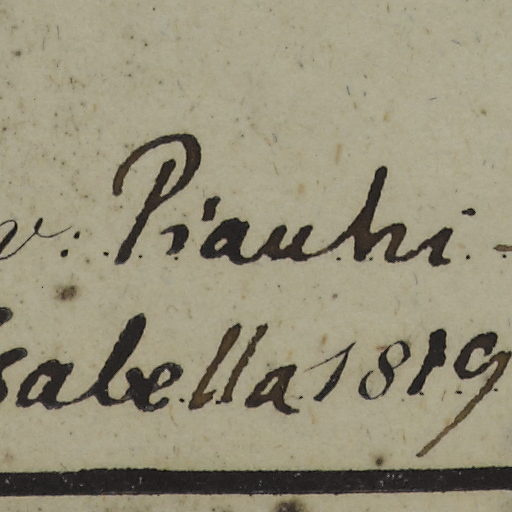 v. Piauhi -
sabella 1819